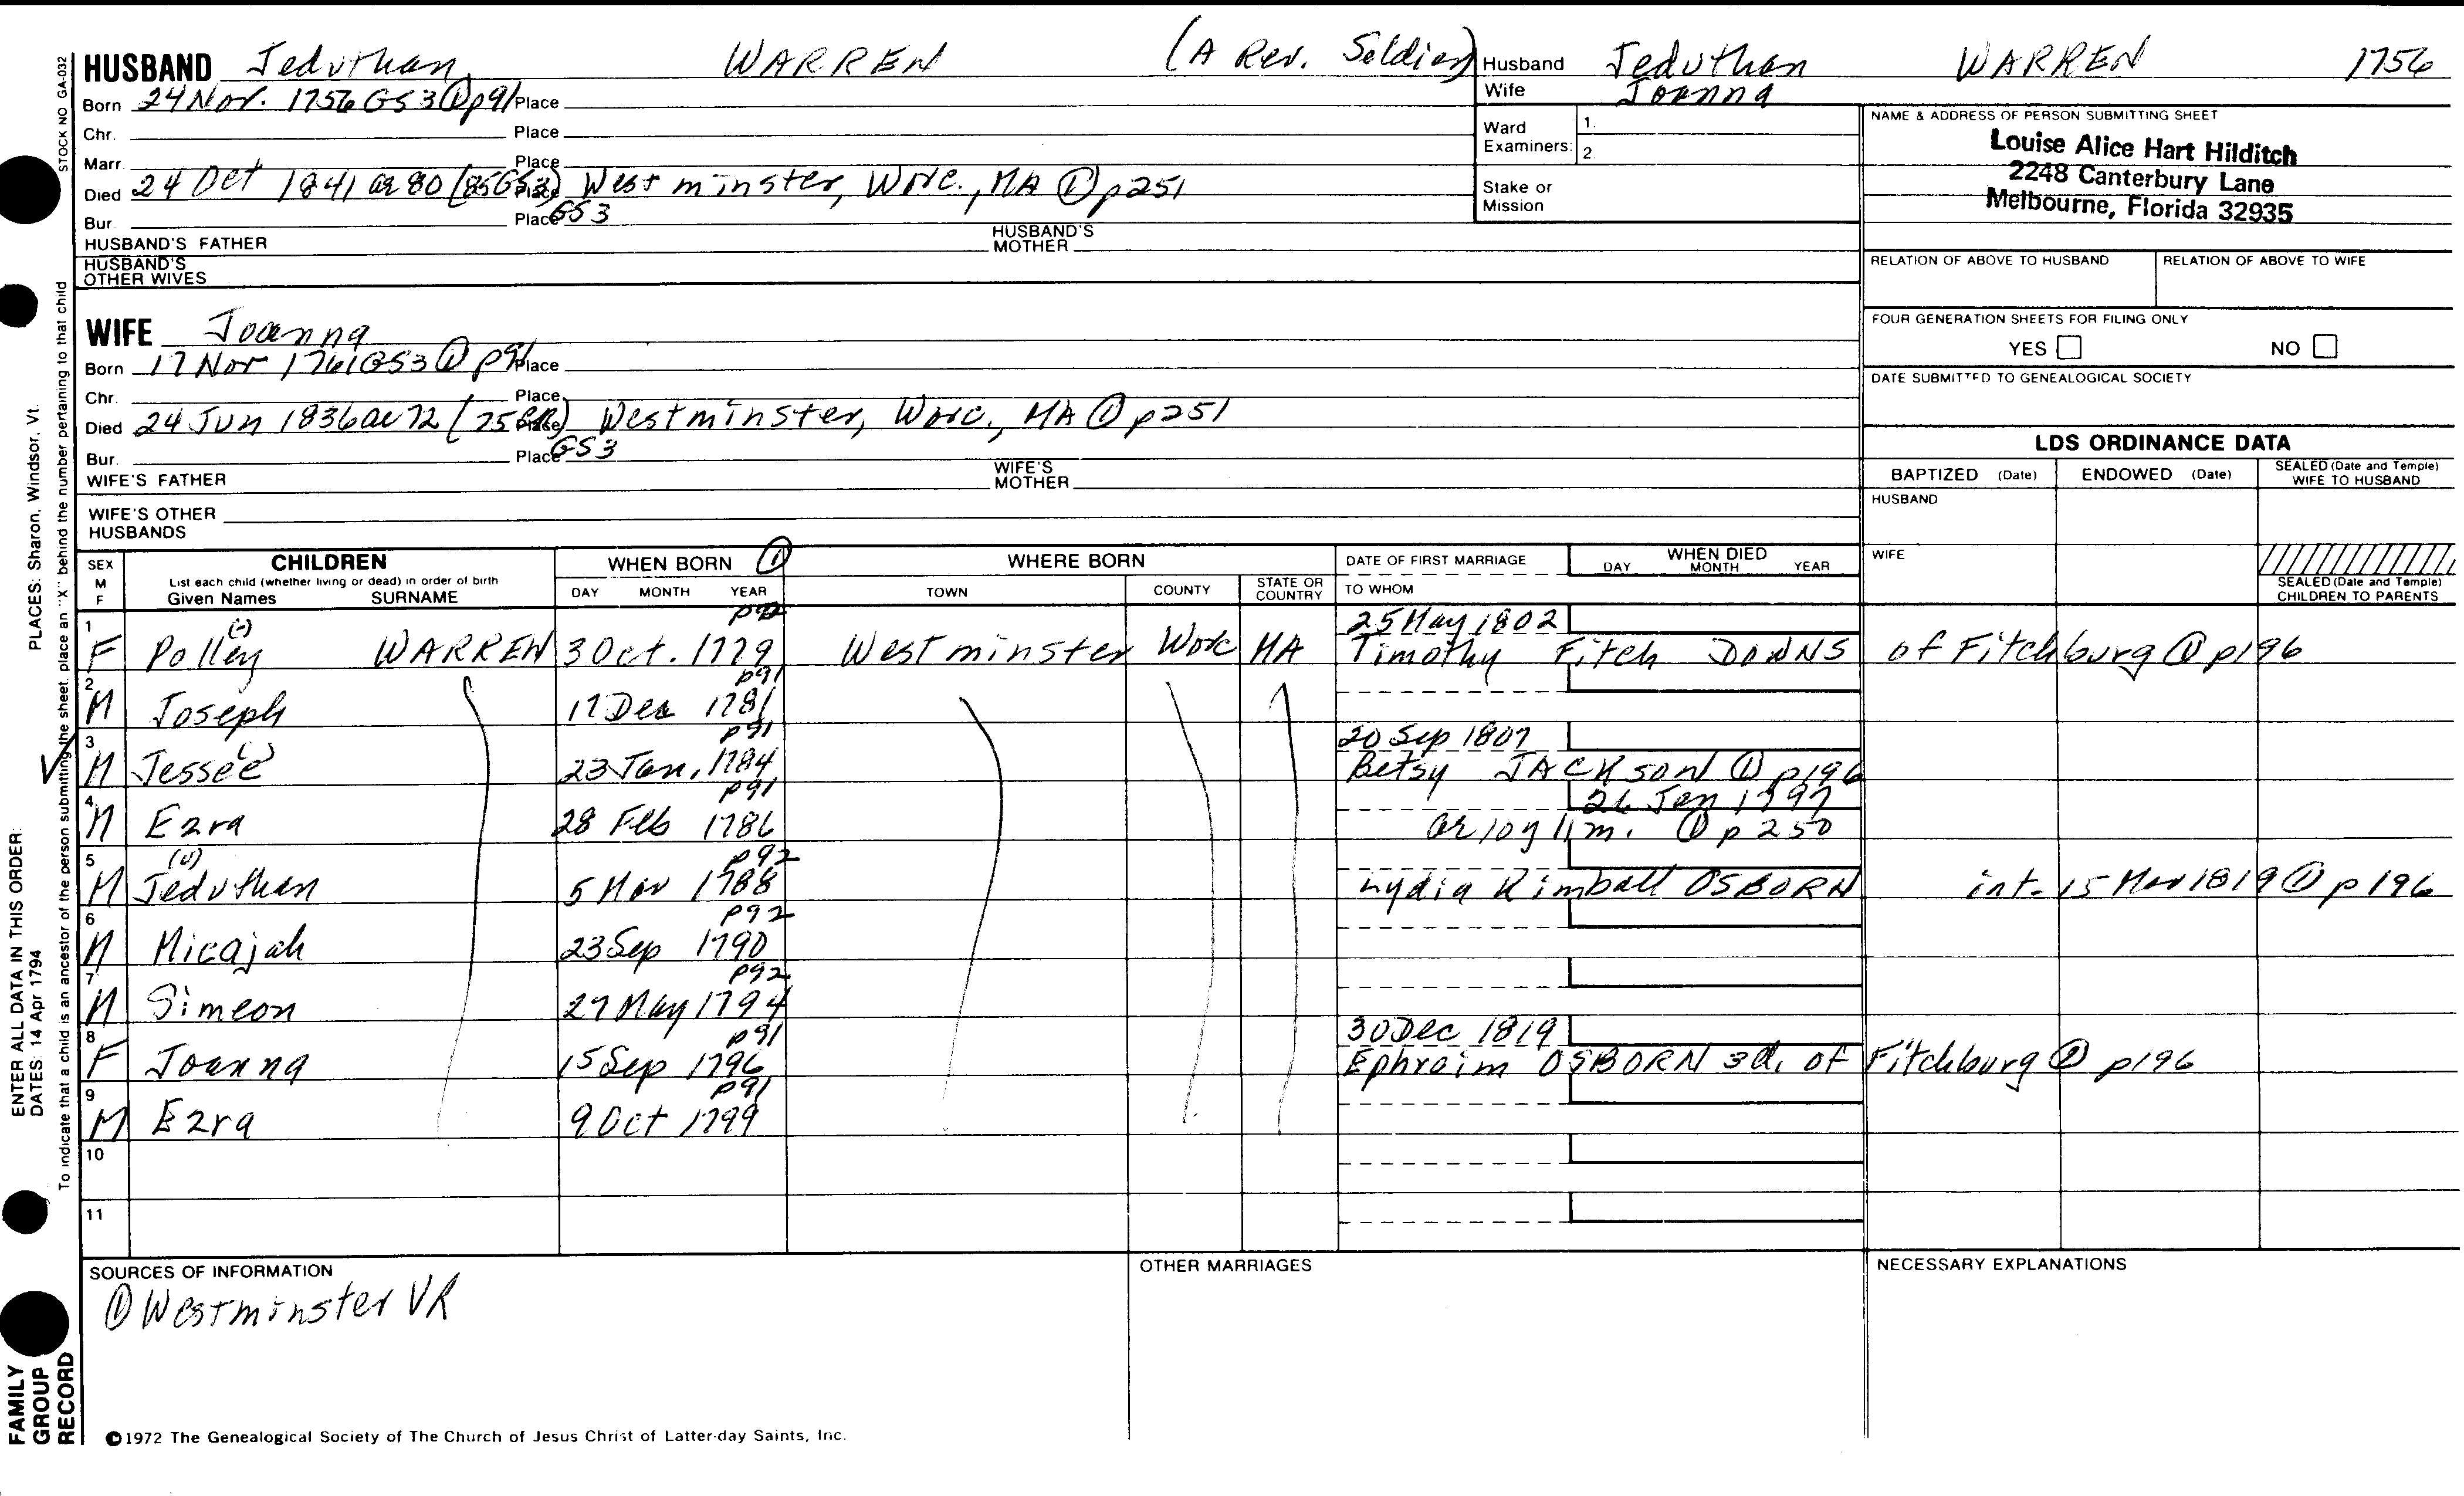 HUSBAND Jeduthan WARREN (A Rev. Soldier)
Born 24 Nov. 1756 GS3 ① p91 Place
Chr. Place
Marr. Place
Died 24 Oct 1841 ae 80 (85 GS3) Place Westminster, Worc., MA ① p251
Bur. Place GS3
HUSBAND'S FATHER HUSBAND'S MOTHER
HUSBAND'S OTHER WIVES
WIFE Joanna
Born 17 Nov 1761 GS3 ① p91 Place
Chr. Place
Died 24 Jun 1836 ae 72 (75 GR) Place Westminster, Worc., MA ① p251
Bur. Place GS3
WIFE'S FATHER WIFE'S MOTHER
WIFE'S OTHER HUSBANDS
Husband Jeduthan WARREN 1756
Wife Joanna
Ward Examiners: 1. 2.
Stake or Mission
NAME & ADDRESS OF PERSON SUBMITTING SHEET
Louise Alice Hart Hilditch
2248 Canterbury Lane
Melbourne, Florida 32935
RELATION OF ABOVE TO HUSBAND RELATION OF ABOVE TO WIFE
FOUR GENERATION SHEETS FOR FILING ONLY
YES NO
DATE SUBMITTED TO GENEALOGICAL SOCIETY
LDS ORDINANCE DATA
BAPTIZED (Date) ENDOWED (Date) SEALED (Date and Temple) WIFE TO HUSBAND
HUSBAND
WIFE
SEALED (Date and Temple) CHILDREN TO PARENTS
SEX M F
CHILDREN
List each child (whether living or dead) in order of birth
Given Names SURNAME
WHEN BORN ①
DAY MONTH YEAR
WHERE BORN
TOWN COUNTY STATE OR COUNTRY
DATE OF FIRST MARRIAGE
TO WHOM
WHEN DIED
DAY MONTH YEAR
p92 25 May 1802
1 F Polley (-) WARREN 3 Oct. 1779 Westminster Worc MA Timothy Fitch DOWNS of Fitchburg ① p196
p91
2 M Joseph 17 Dec 1781
p91 20 Sep 1807
3 M Jessee (-) 23 Jan. 1784 Betsy JACKSON ① p196
p91 26 Jan 1797
4 M Ezra 28 Feb 1786 ae 10 y 11 m. ① p250
p92
5 M Jeduthan (u) 5 Mar 1788 Lydia Kimball OSBORN int. 15 Mar 1819 ① p196
p92
6 M Micajah 23 Sep 1790
p92
7 M Simeon 27 May 1794
p91 30 Dec 1819
8 F Joanna 15 Sep 1796 Ephraim OSBORN 3d. of Fitchburg ① p196
p91
9 M Ezra 9 Oct 1799
10
11
SOURCES OF INFORMATION
① Westminster VR
OTHER MARRIAGES
NECESSARY EXPLANATIONS
©1972 The Genealogical Society of The Church of Jesus Christ of Latter-day Saints, Inc.
STOCK NO GA-032
To indicate that a child is an ancestor of the person submitting the sheet, place an "X" behind the number pertaining to that child
ENTER ALL DATA IN THIS ORDER: PLACES: Sharon, Windsor, Vt.
DATES: 14 Apr 1794
FAMILY
GROUP
RECORD